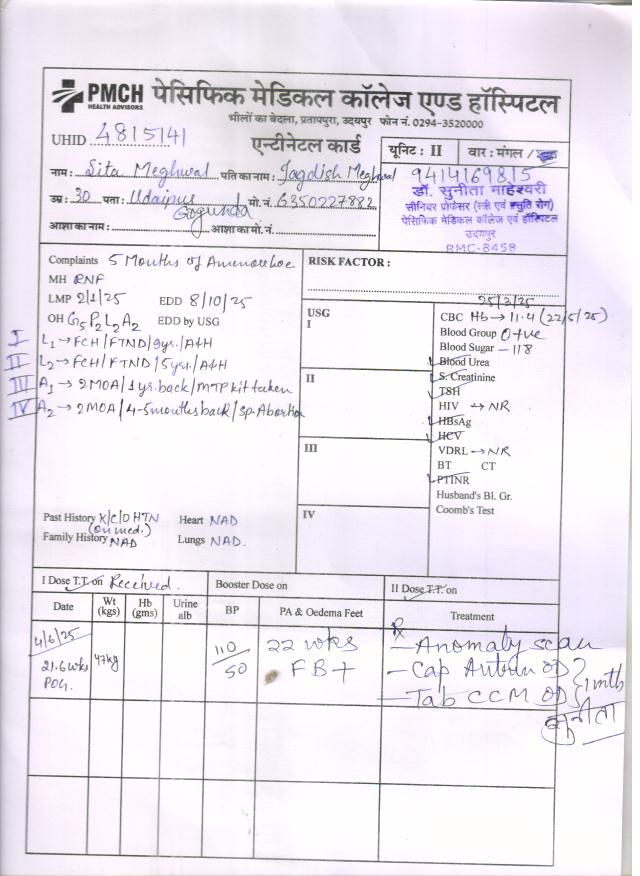 PMCH
HEALTH ADVISORS
पेसिफिक मेडिकल कॉलेज एण्ड हॉस्पिटल
भीलों का बेदला, प्रतापपुरा, उदयपुर फोन नं. 0294-3520000
UHID 4815141
एन्टीनेटल कार्ड
यूनिट : II वार : मंगल /
नाम : Sita Meghwal पति का नाम : Jagdish Meghwal
9414169815
उम्र : 30 पता : Udaipur मो. नं. 6350227882
Gogunda
डॉ. सुनीता माहेश्वरी
सीनियर प्रोफेसर (स्त्री एवं प्रसुति रोग)
पेसिफिक मेडिकल कॉलेज एवं हॉस्पिटल
उदयपुर
RMC-8458
आशा का नाम : आशा का मो. नं.
Complaints 5 Months of Amenorrhoe
MH RNF
LMP 2/1/25 EDD 8/10/25
OH G5P2L2A2 EDD by USG
I L1→FCH/FTND/9yrs./A+H
II L2→FCH/FTND/5yrs./A+H
III A1→2MOA/1yrs.back/MTP kit taken
IV A2→2MOA/4-5months back/sp.Abortion
Past History K/C/O HTN Heart NAD
(on med.)
Family History NAD Lungs NAD.
RISK FACTOR :
USG
I
II
III
IV
25/3/25
CBC Hb→11.4 (22/5/25)
Blood Group O+ve
Blood Sugar – 118
Blood Urea
S. Creatinine
TSH
HIV → NR
HBsAg
HCV
VDRL → NR
BT CT
PTINR
Husband's Bl. Gr.
Coomb's Test
I Dose T.T. on Received. Booster Dose on II Dose T.T. on
Date Wt (kgs) Hb (gms) Urine alb BP PA & Oedema Feet Treatment
4/6/25 110/50 22 wks Rx – Anomaly scan
21.6 wks 47kg FB+ – Cap Autrin OD
POG. – Tab CCM OD } 1 mth
सुनीता